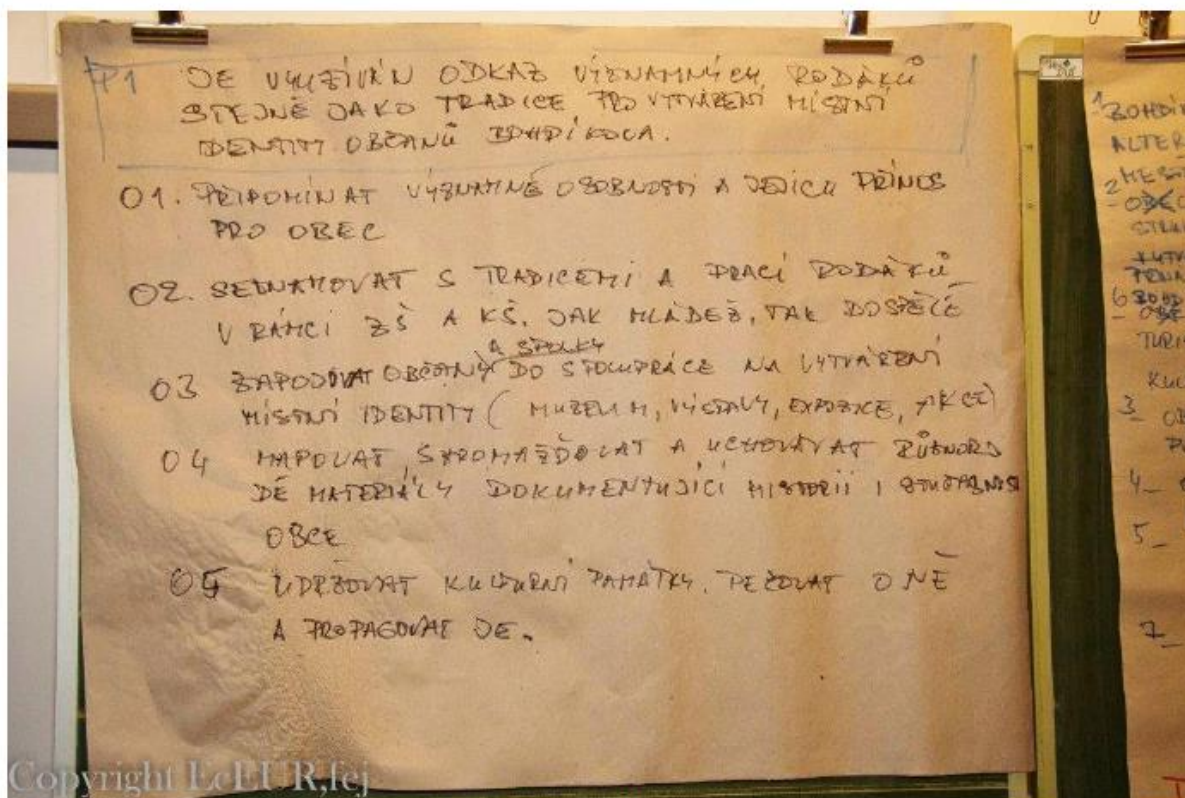 P1 JE VYUŽÍVÁN ODKAZ VÝZNAMNÝCH RODÁKŮ
STEJNĚ JAKO TRADICE PRO VYTVÁŘENÍ MÍSTNÍ
IDENTITY OBČANŮ BOHDÍKOVA.
O1. PŘIPOMÍNAT VÝZNAMNÉ OSOBNOSTI A JEJICH PŘÍNOS
PRO OBEC
O2. SEZNAMOVAT S TRADICEMI A PRACÍ RODÁKŮ
V RÁMCI ZŠ A KŠ, JAK MLÁDEŽ, TAK DOSPĚLÉ
A SPOLKY
O3 ZAPOJOVAT OBČANY DO SPOLUPRÁCE NA VYTVÁŘENÍ
MÍSTNÍ IDENTITY (MUZEUM, VÝSTAVY, EXPOZICE, AKCE)
O4 MAPOVAT, SHROMAŽĎOVAT A UCHOVÁVAT RŮZNORO
DÉ MATERIÁLY DOKUMENTUJÍCÍ HISTORII I SOUČASNOST
OBCE
O5 UDRŽOVAT KULTURNÍ PAMÁTKY, PEČOVAT O NĚ
A PROPAGOVAT JE.
1
BOHDÍ
ALTER
2
OBEC
6
TURI
KUL
3_ OB
4_
5_
7_
Copyright EcEUR,fej